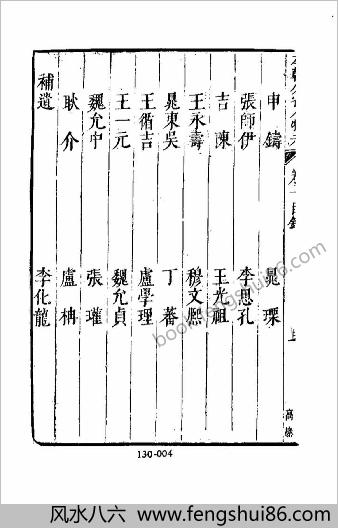 申鑄 晁瑮
張師伊 李思孔
吉陳 王光祖
王永壽 穆文熙
晁東吳 丁蕃
王循吉 盧學理
王一元 魏允貞
魏允中 張瓘
耿介 盧柟
補遺 李化龍
130-004
book.fengshui86.com
风水八六 www.fengshui86.com